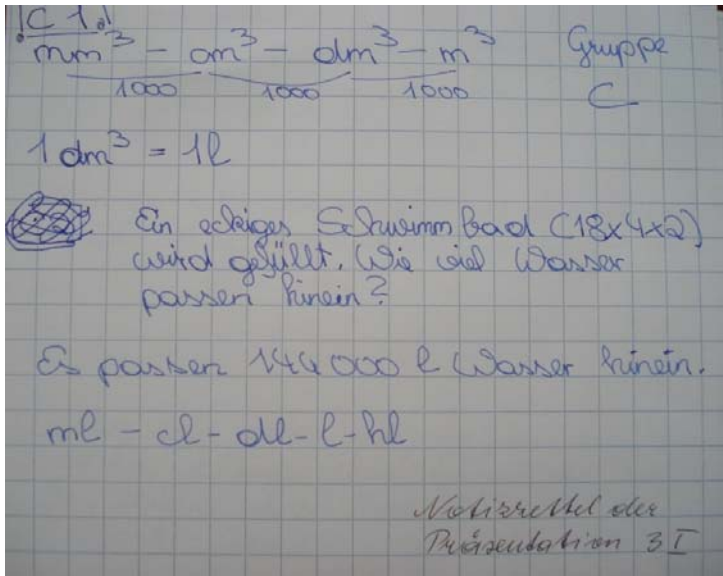 !C 1.!
mm³ - cm³ - dm³ - m³ Gruppe
1000 1000 1000 C
1 dm³ = 1l
Ein eckiges Schwimmbad (18x4x2)
wird gefüllt. Wie viel Wasser
passen hinein?
Es passen 144 000 l Wasser hinein.
ml - cl - dl - l - hl
Notizzettel der
Präsentation 3 I